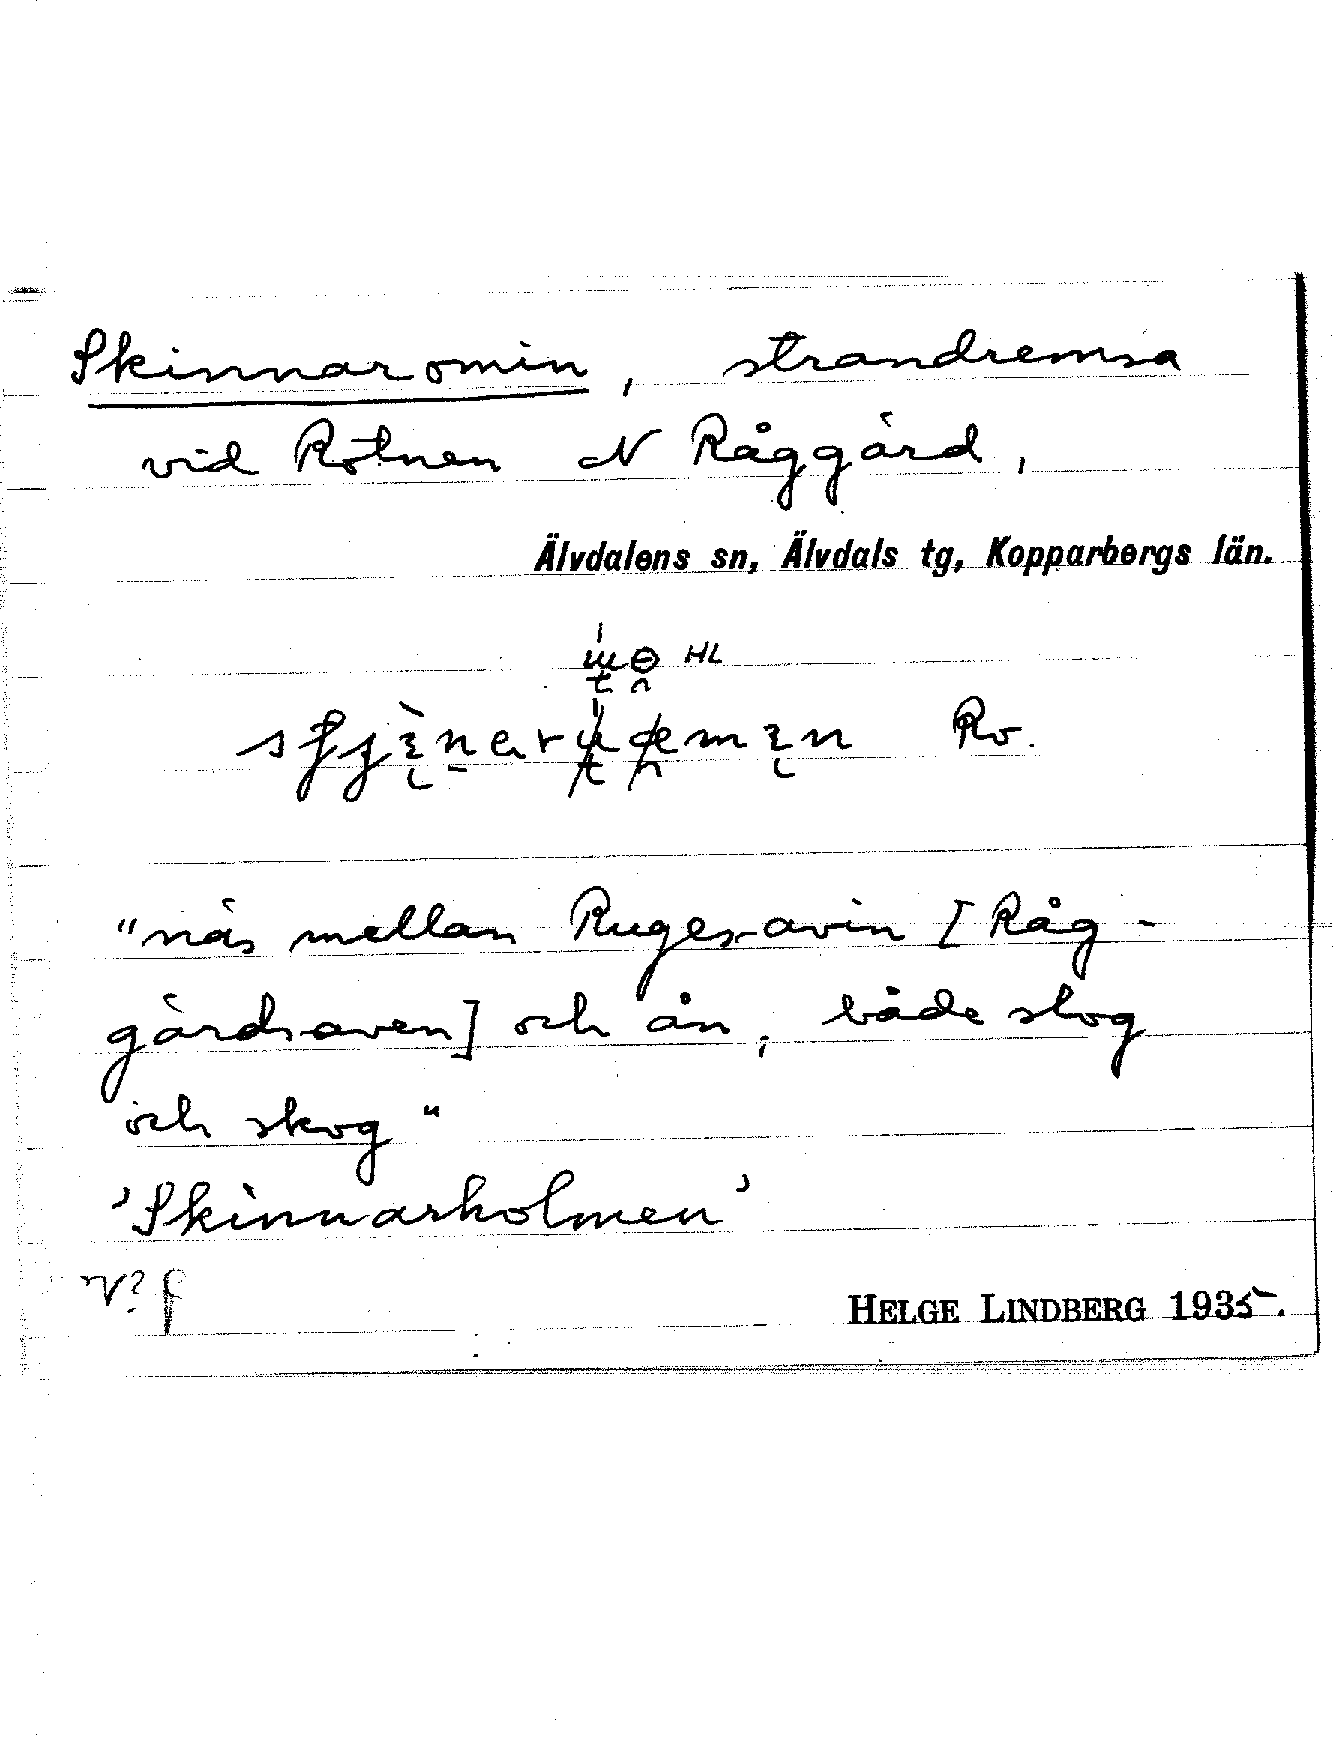 Skinnaromin, strandremsa
vid Rotnen N Råggård,
Älvdalens sn, Älvdals tg, Kopparbergs län.
HL
Ro.
"näs mellan Ruges-avin [Råg-
gårdsaven] och ån, både slog
och skog"
'Skinnarholmen'
HELGE LINDBERG 1935.